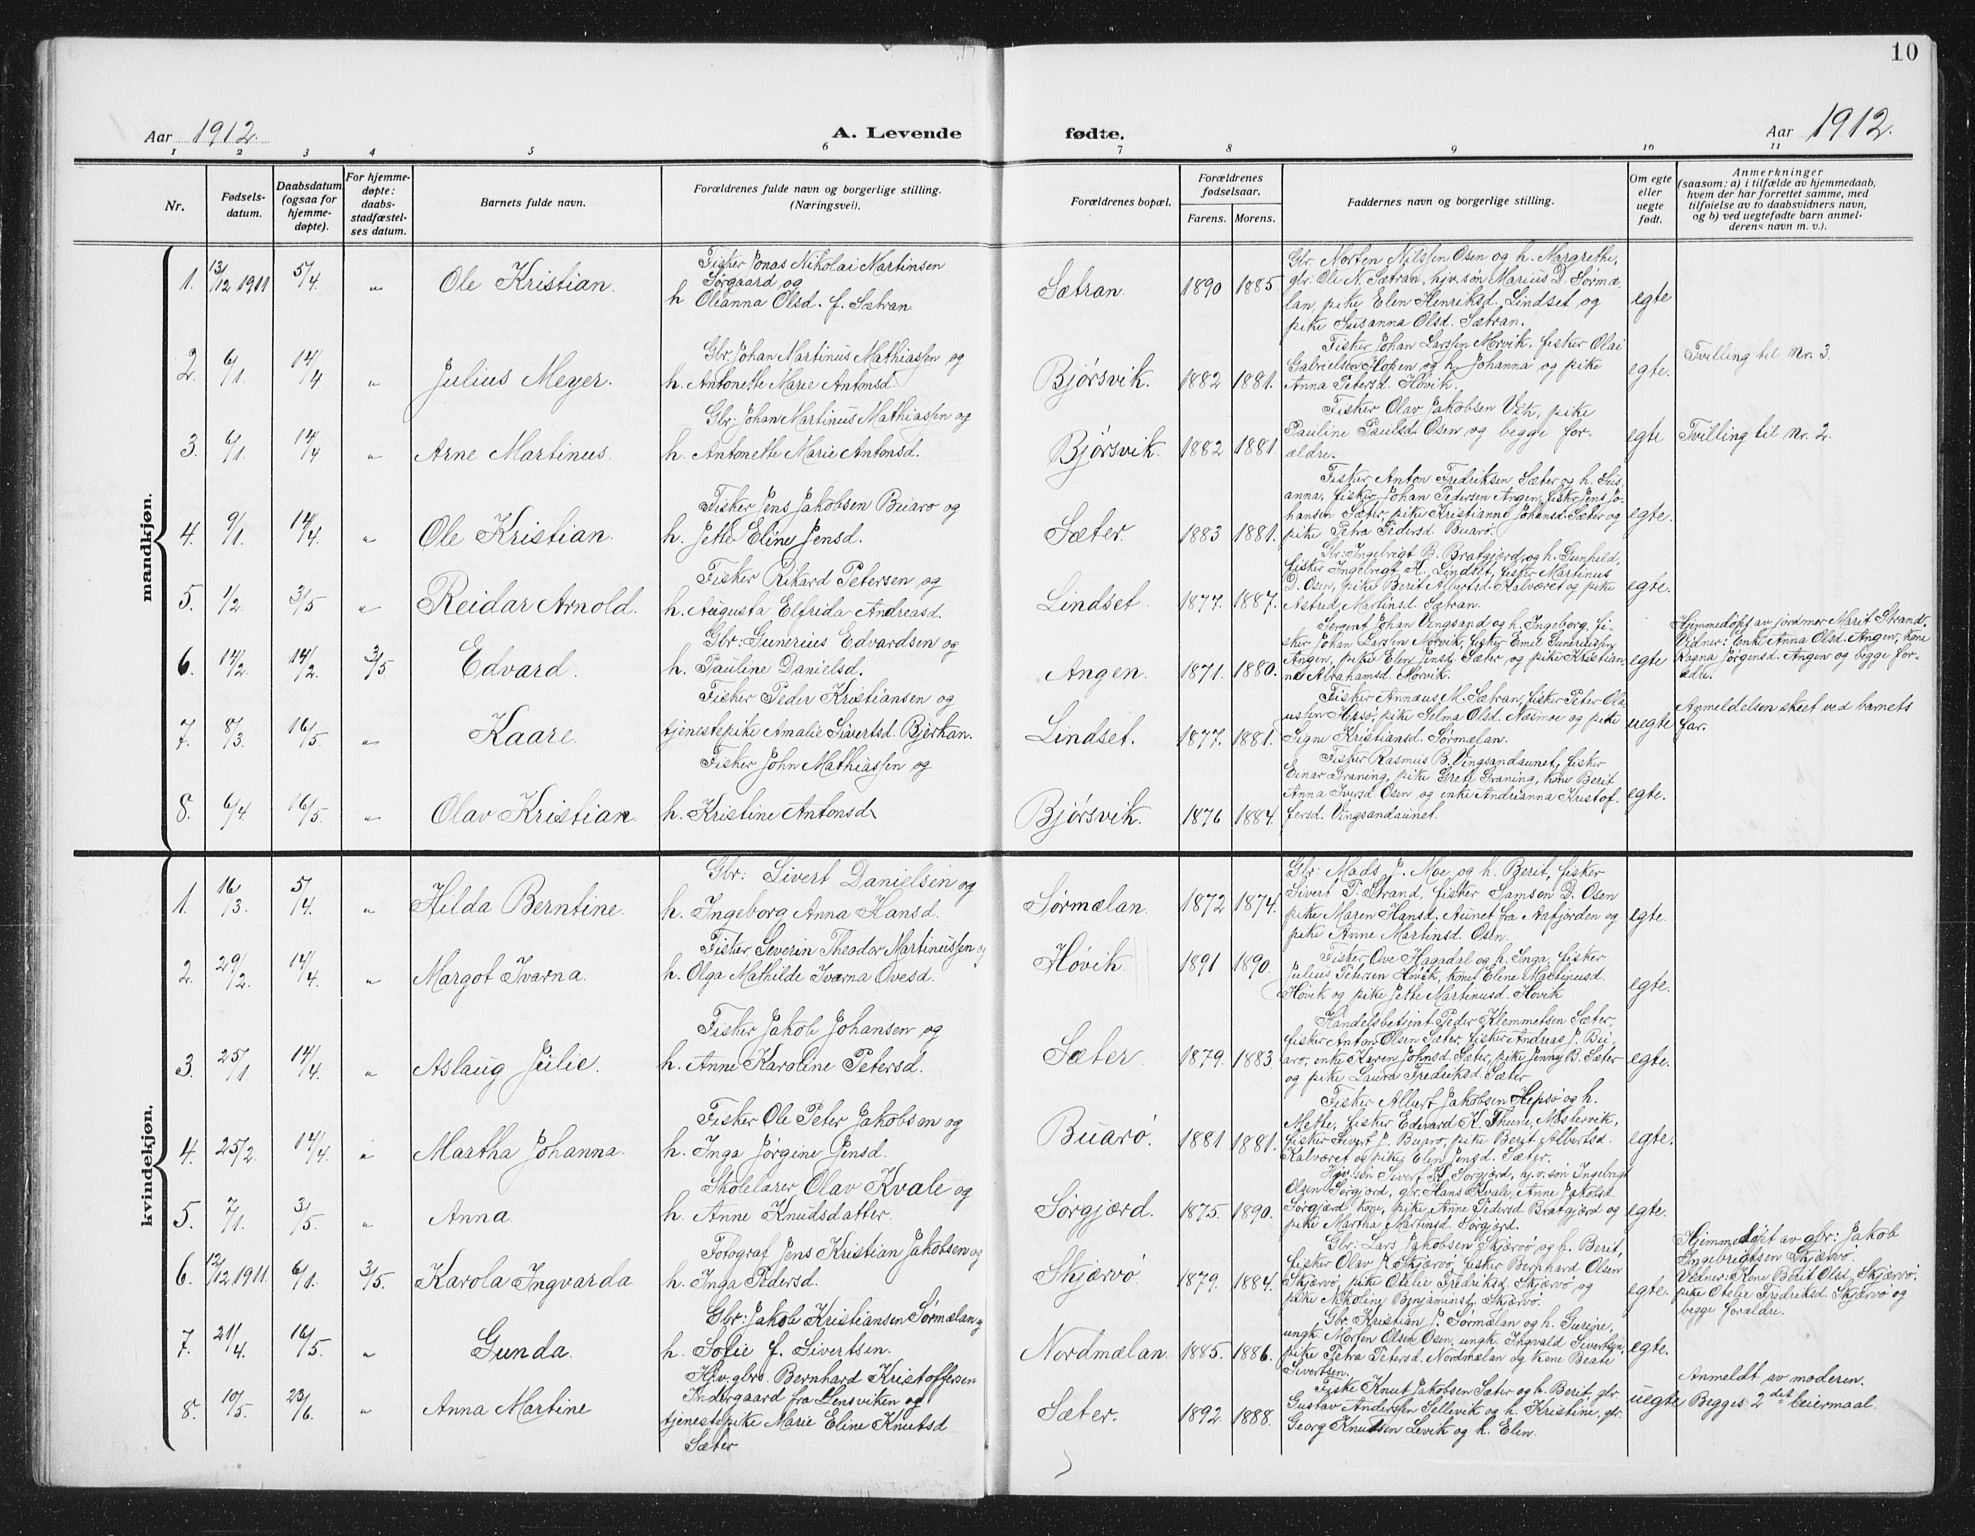 10
Aar 1912.
A. Levende
fødte.
Aar 1912.
1 2 3 4 5 6 7 8 9 10 11
Nr.
Fødsels-
datum.
Daabsdatum
(ogsaa for
hjemme-
døpte).
For hjemme-
døpte:
daabs-
stadfæstel-
ses datum.
Barnets fulde navn.
Forældrenes fulde navn og borgerlige stilling.
(Næringsvei).
Forældrenes bopæl.
Forældrenes
fødselsaar.
Farens. Morens.
Faddernes navn og borgerlige stilling.
Om egte
eller
uegte
født.
Anmerkninger
(saasom: a) i tilfælde av hjemmedaab,
hvem der har forrettet samme, med
tilføielse av to daabsvidners navn,
og b) ved uegtefødte barn anmel-
derens navn m. v.).
mandkjøn.
1. 13/12 1911 5/4 " Ole Kristian.
Fisker Jonas Nikolai Martinsen
Sørgaard og
h Oleanna Olsd. f. Sætran.
Sætran. 1890 1885.
Gbr. Morten Nilssen Osen og h. Margrethe,
gbr. Ole N. Sætran, hjv. søn Marius D. Sørmæ-
lan, pike Elen Henriksd. Lindset og
pike Susanna Olsd. Sætran.
egte
2. 6/1. 14/4 " Julius Meyer.
Gbr. Johan Martinus Mathiassen og
h. Antonette Marie Antonsd.
Bjørsvik. 1882 1881.
Fisker Johan Larssen Morvik, fisker Olai
Gabrielsen Hopen og h. Johanna og pike
Anna Petersd. Høvik.
egte.
Tvilling til nr. 3.
3. 6/1. 14/4 " Arne Martinus.
Gbr. Johan Martinus Mathiassen og
h. Antonette Marie Antonsd.
Bjørsvik. 1882 1881.
Fisker Olav Jakobsen Vik, pike
Pauline Paulsd. Osen og begge for-
ældre.
egte
Tvilling til nr. 2.
4. 9/1. 14/4. " Ole Kristian.
Fisker Jens Jakobsen Buarø og
h. Jette Eline Jensd.
Sæter. 1883 1881.
Fisker Anton Fredriksen Sæter og h. Sus-
anna, fisker Johan Pedersen Angen, fisker Jens Jo-
hansen Sæter, pike Kristianne Johansd. Sæter og
pike Petra Pedersd. Buarø.
egte.
5. 1/2. 3/5 " Reidar Arnold.
Fisker Rikard Petersen og
h. Augusta Elfrida Andreasd.
Lindset. 1877. 1887.
Gbr. Ingebrigt B. Bratgjord og h. Gunhild,
fisker Ingebrigt K. Lindset, fisker Martinus
D. Osen, pike Berit Albertsd. Kalværet og pike
Astrid Martinsd. Sætran.
egte.
6. 14/2. 14/2. 3/5 Edvard.
Gbr: Gunerius Edvardsen og
h. Pauline Danielsd.
Angen. 1871. 1880.
Sergent Johan Vingsand og h. Ingeborg, fi-
sker Johan Larssen Morvik, fisker Emil Guneriussen
Angen, pike Elen Jensd. Sæter, og pike Kristian-
ne Abrahamsd. Morvik.
egte
Hjemmedøpt av jordmor Marit Strand.
Vidner: Enke Anna Olsd. Angen, kone
Ragna Jørginsd. Angen og begge for-
ældre.
7. 8/3. 16/5. " Kaare.
Fisker Peder Kristiansen og
tjenestepike Amalie Sivertsd. Bjerkan.
Lindset. 1877. 1881.
Fisker Annæus M. Sætran, fisker Peter Ola-
ussen Hepsø, pike Selma Olsd. Næsmoe og pike
Signe Kristiansd. Sørmælan.
uegte
Anmeldelsen skeet ved barnets
far.
8. 6/4 16/5. " Olav Kristian.
Fisker John Mathiassen og
h. Kristine Antonsd.
Bjørsvik. 1876 1884.
Fisker Rasmus B. Vingsandaunet, fisker
Einar Graning, pike Grete Graning, kone Berit
Anna Iversd. Osen og enke Andrianna Kristof-
fersd. Vingsandaunet.
egte.
kvindekjøn.
1. 16/3. 5/4. " Hilda Berntine.
Gbr: Sivert Danielsen og
h. Ingeborg Anna Hansd.
Sørmælan. 1872 1874.
Gbr: Mads J. Moe og h. Berit, fisker
Sivert P. Strand, fisker Samson D. Osen
pike Maren Hansd. Aunet fra Aafjorden og
pike Anne Martinsd. Osen.
egte.
2. 29/2. 14/4. " Margot Ivarna.
Fisker Severin Theodor Martinussen og
h. Olga Mathilde Ivarna Ovesd.
Høvik. 1891 1890.
Fisker Ove Hagadal og h. Inga, fisker
Julius Petersen Høvik, kone Eline Martinusd.
Høvik og pike Jette Martinusd. Høvik
egte.
3. 25/1 14/4. " Aslaug Julie.
Fisker Jakob Johansen og
h. Anne Karoline Petersd.
Sæter 1879. 1883.
Handelsbetjent Peder Klemmetsen Sæter,
fisker Anton Olsen Sæter, fisker Andreas J. Bu-
arø, enke Karen Johnsd. Sæter, pike Jenny B. Sæter
og pike Laura Fredriksd. Sæter
egte.
4. 25/2. 14/4. " Martha Johanna.
Fisker Ole Peter Jakobsen og
h. Inga Jørgine Jensd.
Buarø. 1881 1881.
Fisker Albert Jakobsen Hepsø og h.
Mette, fisker Edvard K. Thune, Mostervik,
fisker Sivert J. Buarø, pike Berit Albertsd.
Kalværet og pike Elen Jensd. Sæter.
egte.
5. 7/1. 3/5. " Anna.
Skolelærer Olav Kvale og
h. Anne Knudsdatter.
Sørgjærd. 1875. 1890.
Hjv. søn Sivert K. Sørgjærd, hjv. søn Ingebrigt
Olsen Sørgjord, gbr. Hans Kvale, Anne Jakobsd.
Sørgjærd kone, pike Anna Pedersd. Bratgjærd og
pike Martha Martinsd. Sørgjerd.
egte.
6. 12/12 1911. 6/1. 3/5. Karola Ingvarda
Fotograf Jens Kristian Jakobsen og
h. Inga Pedersd.
Skjærvø. 1879. 1884.
Gbr: Lars Jakobsen Skjærvø og h. Berit,
fisker Olav K. Skjærvø, fisker Bernhard Olsen
Skjærvø, pike Otelie Fredriksd. Skjærvø og
pike Nikoline Benjaminsd. Skjærvø.
egte.
Hjemmedøpt av gbr: Jakob
Ingebrigtsen Skjærvø.
Vidner: Kone Berit Olsd. Skjærvø,
pike Otelie Fredriksd. Skjærvø og
begge forældre.
7. 21/4. 16/5. " Gunda.
Gbr: Jakob Kristiansen Sørmælan og
h. Sofie f. Sivertsen.
Nordmælan. 1885. 1886.
Gbr. Kristian J. Sørmælan og h. Gurine,
ungk. Morten Olsen Osen, ungk. Ingvald Sivertsen,
pike Petra Petersd. Nordmælan og kone Beate
Sivertsen.
egte.
8. 10/5. 23/6. " Anna Martine
Hjv. gbr. Bernhard Kristoffersen
Indergaard fra Lensviken og
tjenestepike Marie Eline Knutsd
Sæter
Sæter. 1892. 1888.
Fiske Knut Jakobsen Sæter og h. Berit, gbr
Gustav Anderssen Sellevik og h. Kristine, gbr.
Georg Knutssen Levik og h. Elen.
uegte
Anmeldt av moderen.
Begges 2det leiermaal.